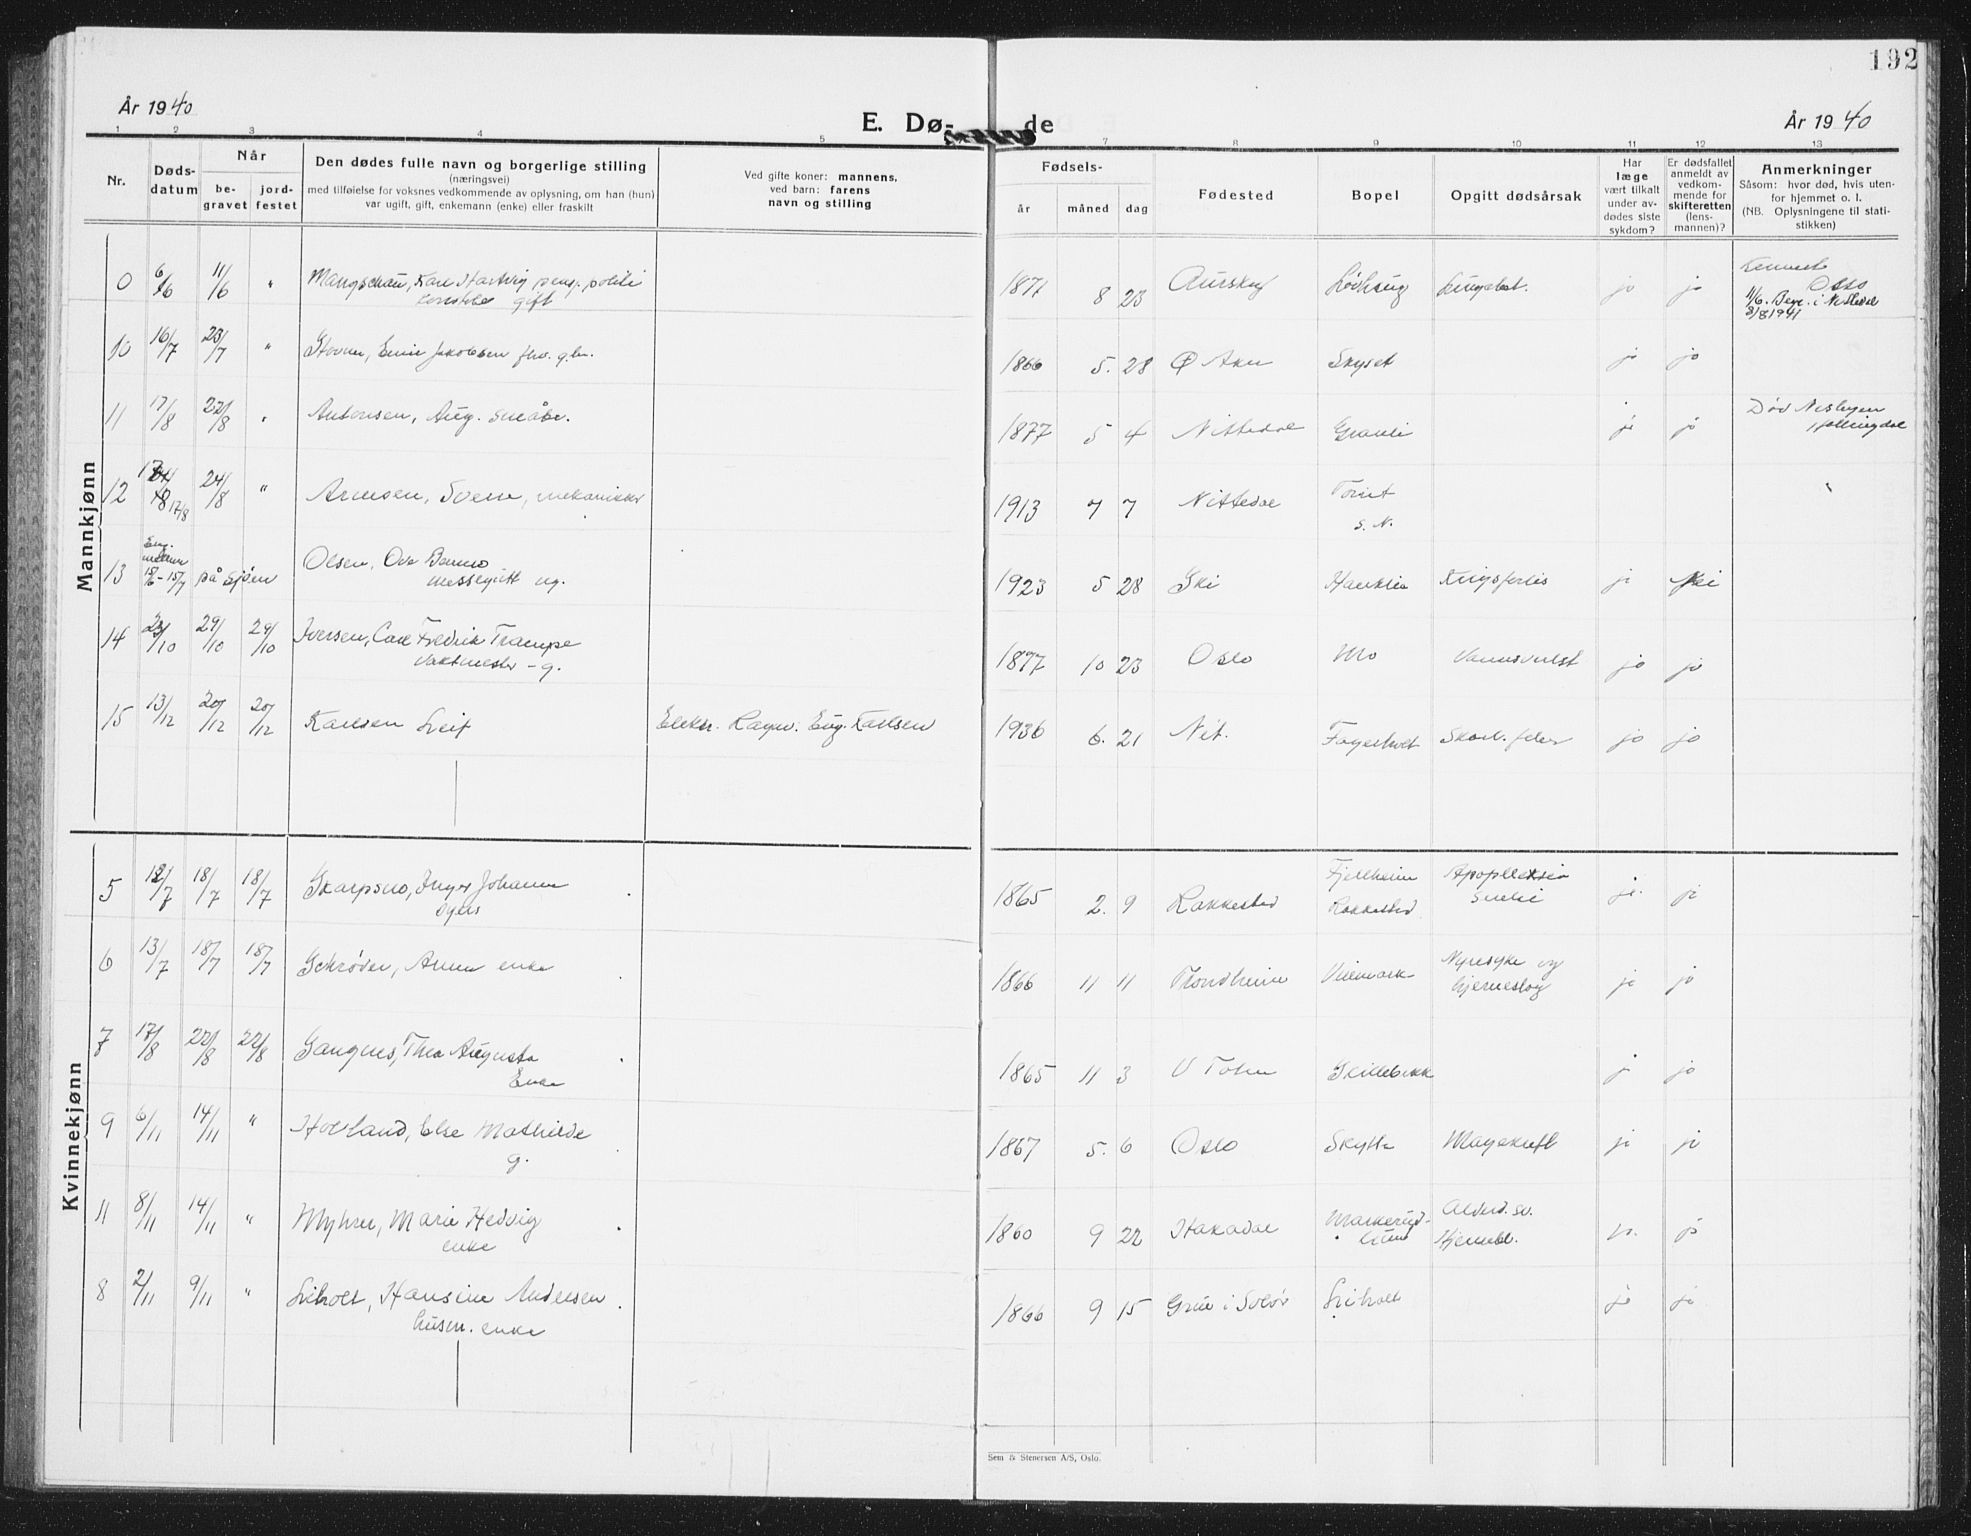 192
År 1940
E. Dø- de
År 1940
1 2 3 4 5 7 8 9 10 11 12 13
Nr.
Døds-
datum
Når
be-
gravet
jord-
festet
Den dødes fulle navn og borgerlige stilling
(næringsvei)
med tilføielse for voksnes vedkommende av oplysning, om han (hun)
var ugift, gift, enkemann (enke) eller fraskilt
Ved gifte koner: mannens,
ved barn: farens
navn og stilling
Fødsels-
år måned dag
Fødested
Bopel
Opgitt dødsårsak
Har
læge
vært tilkalt
under av-
dødes siste
sykdom?
Er dødsfallet
anmeldt av
vedkom-
mende for
skifteretten
(lens-
mannen)?
Anmerkninger
Såsom: hvor død, hvis uten-
for hjemmet o. l.
(NB. Oplysningene til stati-
stikken)
Mannkjønn
0 6/6 11/6 " Karl Hartvig pensj. politi 1871 8 23 Aurskog ja ja
gift Oslo
11/6. Begr. i Nittedal
3/8 1941
10 16/7 23/7 " Jakobsen fhv. gbr. 1866 5. 28 Ø Aker Skyset ja ja
11 17/8 22/8 " Antonsen, Aug. småbr. 1877 5 4 Nittedal Granli ja ja Død Nesbyen
Hallingdal
12 17/8 24/8 " Arnesen, Svein, mekaniker 1913 7 7 Nittedal
s. N.
13 15/6-15/7 på sjøen Olsen, Ove 1923 5 28 Ski Haukli Krigsforlis ja Nei
messegutt ug.
14 23/10 29/10 29/10 Iversen, Carl Fredrik Trampe 1877 10 23 Oslo Mo ja ja
vaktmester - g.
15 13/12 20/12 20/12 Karlsen Leif Elektr. Ragnv. Eug. Karlsen 1936 6. 21 Nit. Fagerholt Skarl. feber ja ja
Kvinnekjønn
5 12/7 18/7 18/7 Skarpsno, Inger Johanne 1865 2. 9 Rakkestad Fjellheim Apopleksia ja. ja
Rakkestad
6 13/7 18/7 18/7 Schrøder, Anna enke 1866 11 11 Trondheim Nyresyke og ja ja
hjerneslag
7 17/8 22/8 22/8 Sangnes, Thea Augusta 1865 11 3 V Toten Skillebekk ja ja
Enke
9 6/11 14/11 " Hovland, Else Mathilde 1867 5. 6 Oslo Skytta Mavekreft ja ja
g.
11 8/11 14/11 " Myhrer, Marie Hedvig 1860 9 22 Hakadal Markerud- Alderd. sv. ja. ja
enke
8 2/11 9/11 " Liholt, Hansine Andersen 1866 9 15 Grue i Solør Liholt ja ja
husm. enke
Sem & Stenersen A/S, Oslo.